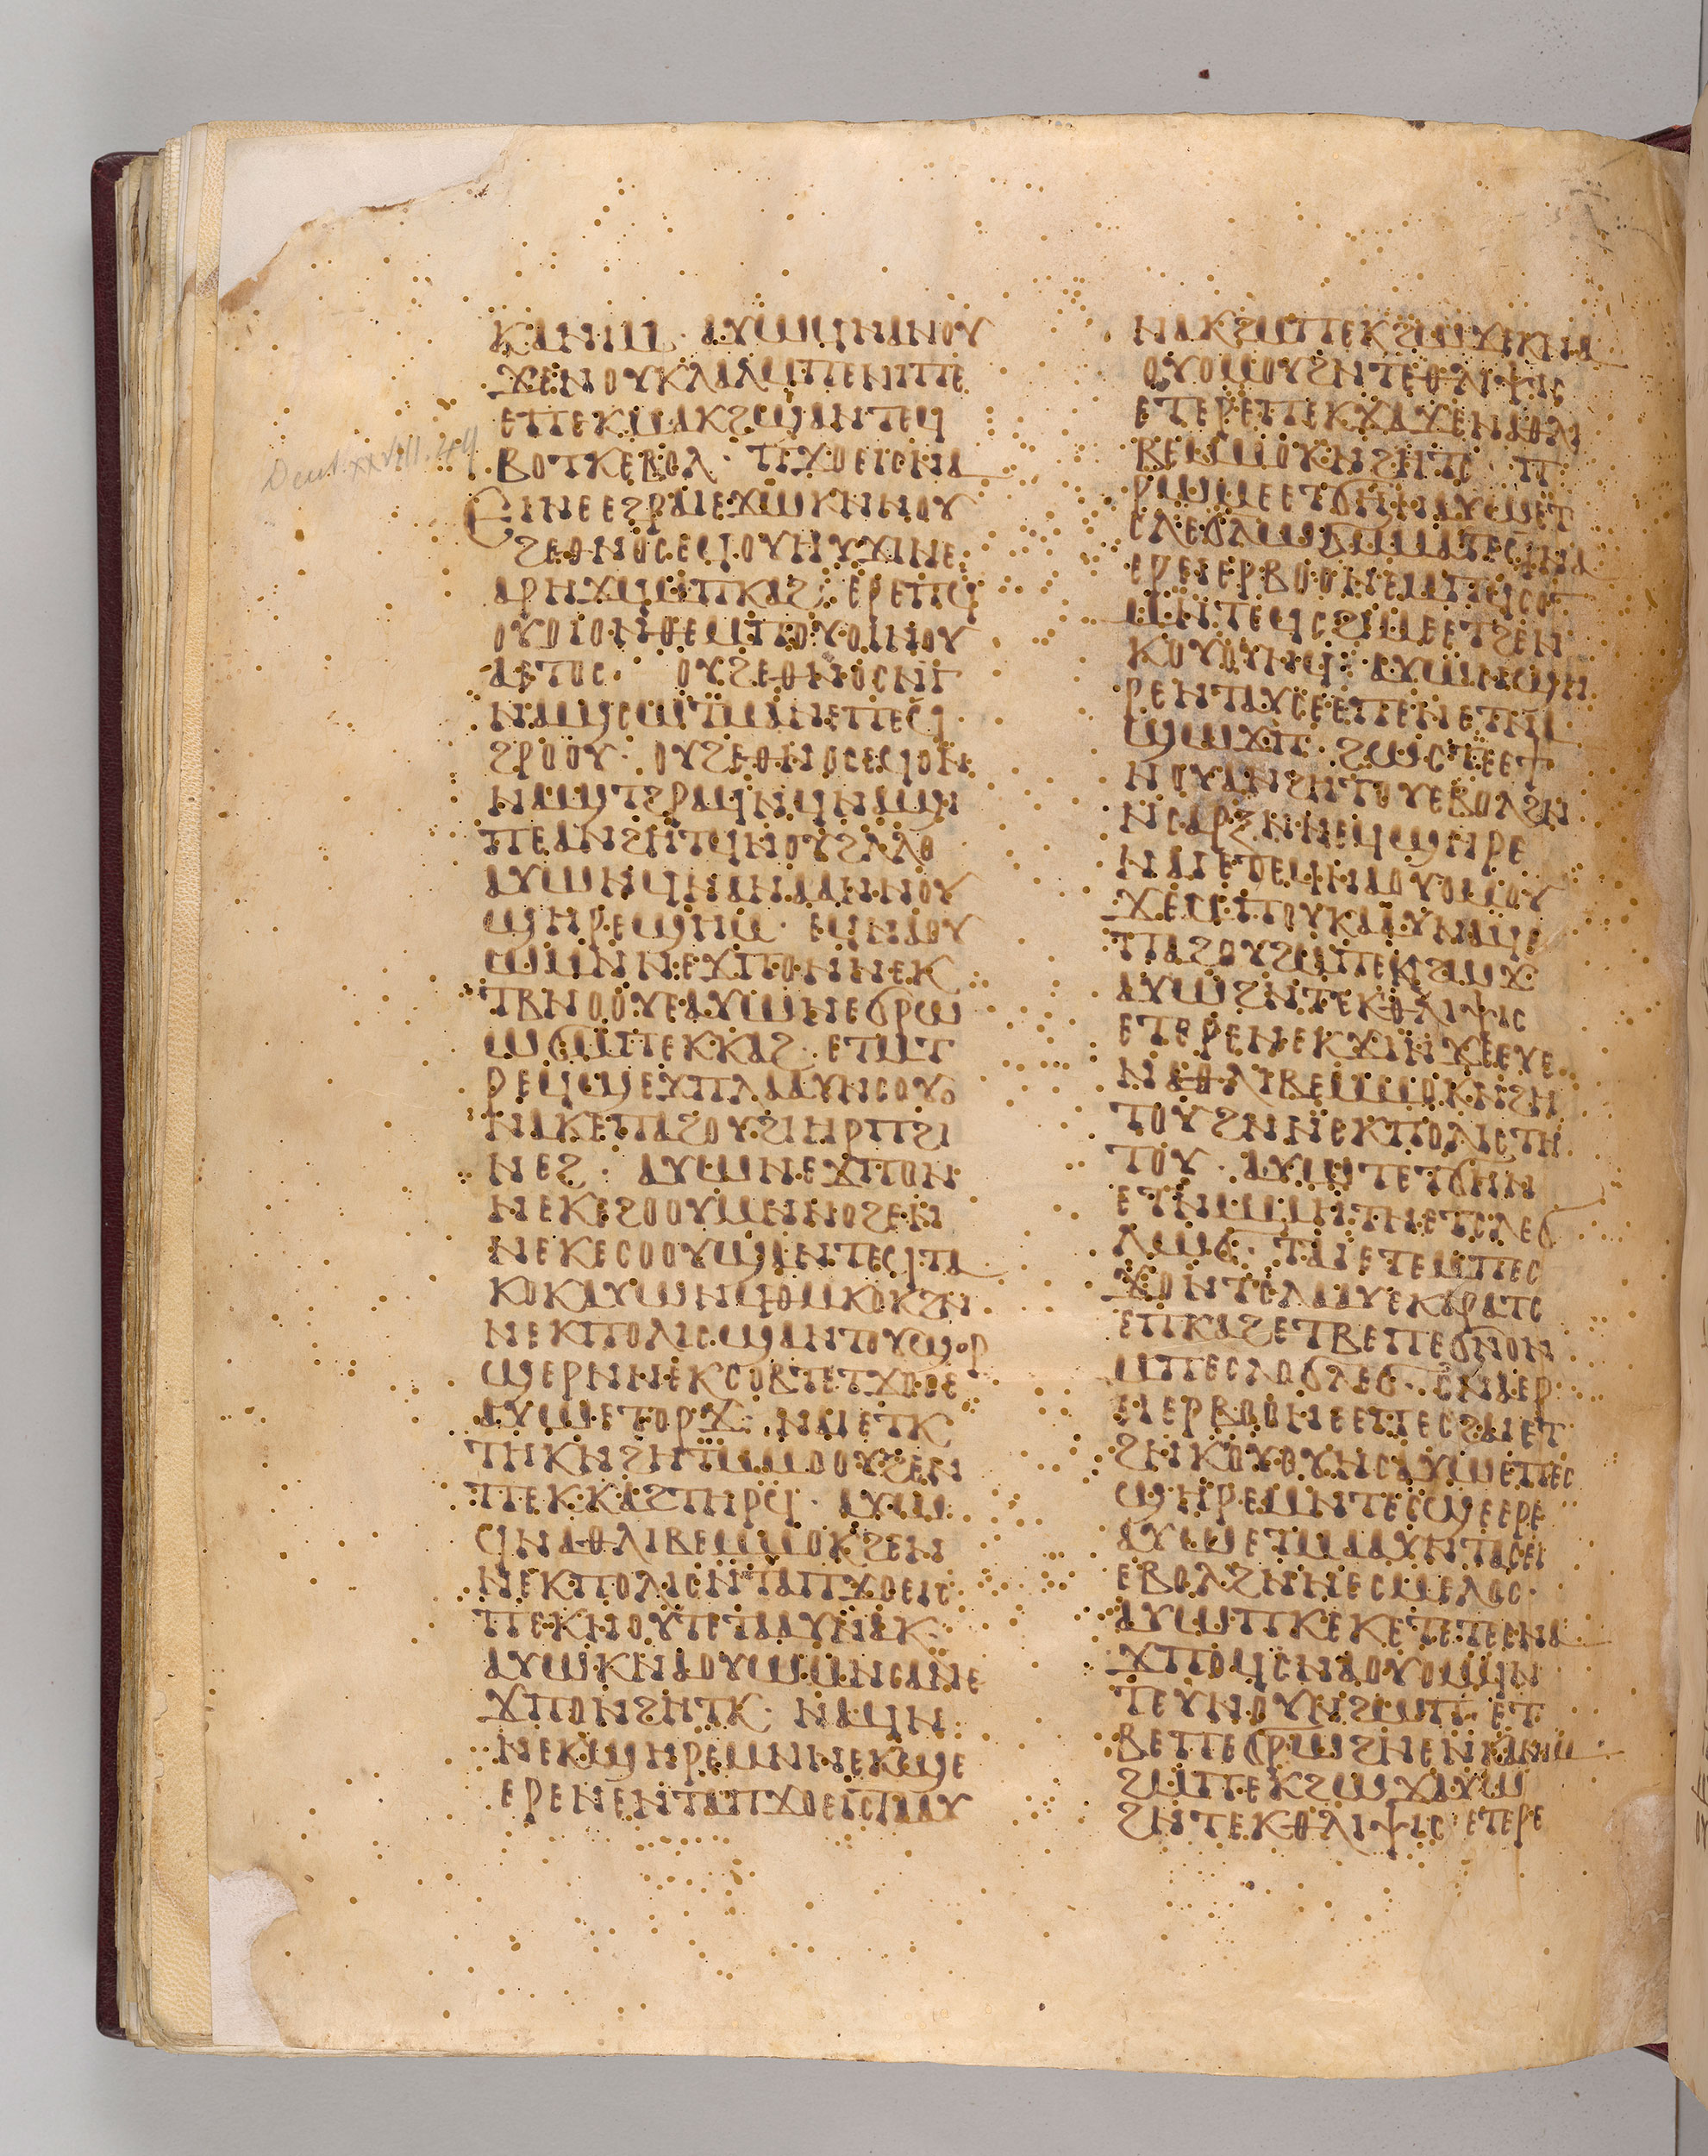 Deut. xxviii. 48
ⲕⲁⲛⲓⲙ· ⲁⲩⲱϥⲛⲁⲛⲟⲩ
ϫⲉⲛⲟⲩⲕⲗⲁⲗⲙⲡⲉⲛⲓⲡⲉ
ⲉⲡⲉⲕⲙⲁⲕϩϣⲁⲛⲧⲉϥ
ⲃⲟⲧⲕⲉⲃⲟⲗ· ⲡϫⲟⲉⲓⲥⲛⲁ
ⲉⲓⲛⲉⲉϩⲣⲁⲓⲉϫⲱⲕⲛⲛⲟⲩ
ϩⲉⲑⲛⲟⲥⲉϥⲟⲩⲏⲩϫⲓⲛⲉ
ⲁⲣⲏϫϥⲙⲡⲕⲁϩ· ⲉⲣⲉⲡϥ
ⲟⲩⲟⲓⲟⲛⲑⲉⲙⲡⲟⲩⲟⲓⲛⲟⲩ
ⲁⲉⲧⲟⲥ· ⲟⲩϩⲉⲑⲛⲟⲥⲛⲅ
ⲛⲁϣⲥⲱⲧⲙⲁⲛⲉⲡⲉϥ
ϩⲣⲟⲟⲩ· ⲟⲩϩⲉⲑⲛⲟⲥⲉϥⲟⲛ
ⲛⲁϣⲧϩⲣⲁϥⲛϥⲛⲁϣⲓ
ⲡⲉⲁⲛϩⲏⲧϥⲛⲟⲩϩⲗⲗⲟ
ⲁⲩⲱⲛϥⲛⲁⲛⲁⲁⲛⲛⲟⲩ
ϣⲏⲣⲉϣⲏⲙ· ⲉϥⲛⲁⲟⲩ
ⲱⲙⲛⲛⲉϫⲡⲟⲛⲛⲉⲕ
ⲧⲃⲛⲟⲟⲩⲉⲁⲩⲱⲛⲉϭⲣⲱ
ⲱϭⲙⲡⲉⲕⲕⲁϩ· ⲉⲧⲙⲧ
ⲣⲉϥϣⲉϫⲡⲗⲁⲁⲩⲛⲥⲟⲩⲟ
ⲛⲁⲕⲉⲡⲁϩⲟⲩϩⲓⲏⲣⲡϩⲓ
ⲛⲉϩ· ⲁⲩⲱⲛⲉϫⲡⲟⲛ
ⲛⲉⲕⲉϩⲟⲟⲩⲙⲛⲛⲟϩⲉⲛ
ⲛⲉⲕⲉⲥⲟⲟⲩϣⲁⲛⲧⲉϥⲧⲁ
ⲕⲟⲕⲁⲩⲱⲛϥⲑⲙⲕⲟⲕϩⲛ
ⲛⲉⲕⲡⲟⲗⲓⲥϣⲁⲛⲧⲟⲩϣⲟⲣ
ϣⲉⲣⲛⲛⲉⲕⲥⲟⲃⲧⲉⲧϫⲟⲥⲉ
ⲁⲩⲱⲉⲧⲟⲣϫ· ⲛⲁⲓⲉⲧⲕ
ⲧⲏⲕⲛϩⲏⲧⲙⲙⲟⲟⲩϩⲉⲛ
ⲡⲉⲕⲕⲁϩⲧⲏⲣϥ· ⲁⲩⲱ
ϥⲛⲁⲑⲗⲓⲃⲉⲙⲙⲟⲕϩⲉⲛ
ⲛⲉⲕⲡⲟⲗⲓⲥⲛⲧⲁⲡϫⲟⲉⲓⲥ
ⲡⲉⲕⲛⲟⲩⲧⲉⲧⲁⲁⲩⲛⲁⲕ·
ⲁⲩⲱⲕⲛⲁⲟⲩⲱⲙⲛⲥⲁⲛⲉ
ϫⲡⲟⲛϩⲏⲧⲕ· ⲛⲁϥⲛ
ⲛⲉⲕϣⲏⲣⲉⲙⲛⲛⲉⲕϣⲉ
ⲉⲣⲉⲛⲉⲛⲧⲁⲡϫⲟⲉⲓⲥⲧⲁⲁⲩ
ⲛⲁⲕϩⲙⲡⲉⲕϩⲱϫⲉⲕⲛⲁ
ⲟⲩⲟⲙⲟⲩϩⲛⲧⲉⲑⲗⲓⲯⲓⲥ
ⲉⲧⲉⲣⲉⲡⲉⲕϫⲁϫⲉⲛⲁⲑⲗⲓ
ⲃⲉⲙⲙⲟⲕⲛϩⲏⲧⲥ· ⲡ
ⲣⲱⲙⲉⲉⲧϭⲏⲛⲁⲩⲱⲉⲧ
ⲥⲗⲉϭⲗⲱϭⲙⲙⲁⲧⲉϥⲛⲁ
ⲉⲣⲉⲓⲉⲣⲃⲟⲟⲛⲉⲙⲡⲉϥⲥⲟⲛ
ⲙⲛⲧⲉϥⲥϩⲓⲙⲉⲉⲧϩⲉⲛ
ⲕⲟⲩⲟⲩⲛϥ· ⲁⲩⲱⲛϣⲏ
ⲣⲉⲛⲧⲁⲩⲥⲉⲉⲡⲉⲛⲉⲧⲛⲁ
ϣⲱϫⲡ· ϩⲱⲥⲧⲉⲉϯ
ⲛⲟⲩⲁⲛϩⲏⲧⲟⲩⲉⲃⲟⲗϩⲛ
ⲛⲥⲁⲣϩⲛⲛⲉϥϣⲏⲣⲉ
ⲛⲁⲓⲉⲧⲉϥⲛⲁⲟⲩⲟⲙⲟⲩ
ϫⲉⲙⲡⲟⲩⲕⲁⲁⲩⲛⲁϥⲉ
ⲡⲁϩⲟⲩϩⲙⲡⲉⲕϩⲱϫ
ⲁⲩⲱϩⲛⲧⲉⲕⲑⲗⲓⲯⲓⲥ
ⲉⲧⲉⲣⲉⲛⲉⲕϫⲓⲛϫⲉⲉⲩⲉ
ⲛⲁⲑⲗⲓⲃⲉⲙⲙⲟⲕⲛϩⲏ
ⲧⲟⲩϩⲛⲛⲉⲕⲡⲟⲗⲓⲥⲧⲏ
ⲧⲟⲩ· ⲁⲩⲱⲧⲉⲧϭⲏⲛ
ⲉⲧⲛⲙⲙⲏⲧⲛⲉⲧⲥⲗⲉϭ
ⲗⲱϭ· ⲧⲁⲓⲉⲧⲉⲙⲡⲉⲥ
ϫⲟⲛⲧⲉⲗⲁⲁⲩⲉⲕⲁⲣⲁⲧⲥ
ⲉⲡⲕⲁϩⲉⲧⲃⲉⲡⲉϭⲛⲟⲛ
ⲙⲡⲉⲥⲗⲟϭⲗⲉϭ· ⲥⲛⲁⲉⲣ
ⲉⲓⲉⲣⲃⲟⲟⲛⲉⲉⲡⲉⲥϩⲁⲓⲉⲧ
ϩⲛⲕⲟⲩⲟⲩⲛⲥⲁⲩⲱⲉⲡⲉⲥ
ϣⲏⲣⲉⲙⲛⲧⲉⲥϣⲉⲉⲣⲉ
ⲁⲩⲱⲉⲧⲙⲁⲁⲩⲛⲧⲁⲥⲉⲓ
ⲉⲃⲟⲗϩⲛⲛⲉⲥⲙⲉⲗⲟⲥ·
ⲁⲩⲱⲡⲕⲉⲕⲉⲧⲉⲧⲉⲥⲛⲁ
ϫⲡⲟϥⲥⲛⲁⲟⲩⲟⲙϥⲛ
ⲧⲉⲩⲛⲟⲩⲛϩⲱⲡ· ⲉⲧ
ⲃⲉⲡⲉϭⲣⲱϩⲛⲉⲛⲕⲁⲛⲓⲙ·
ϩⲙⲡⲉⲕϩⲱϫⲁⲩⲱ
ϩⲛⲧⲉⲕⲑⲗⲓⲯⲓⲥ ⲉⲧⲉⲣⲉ